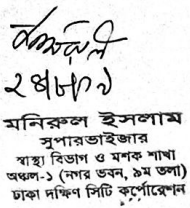 মনিরুল ইসলাম
সুপারভাইজার
স্বাস্থ্য বিভাগ ও মশক শাখা
অঞ্চল-১ (নগর ভবন, ৯ম তলা)
ঢাকা দক্ষিণ সিটি কর্পোরেশন